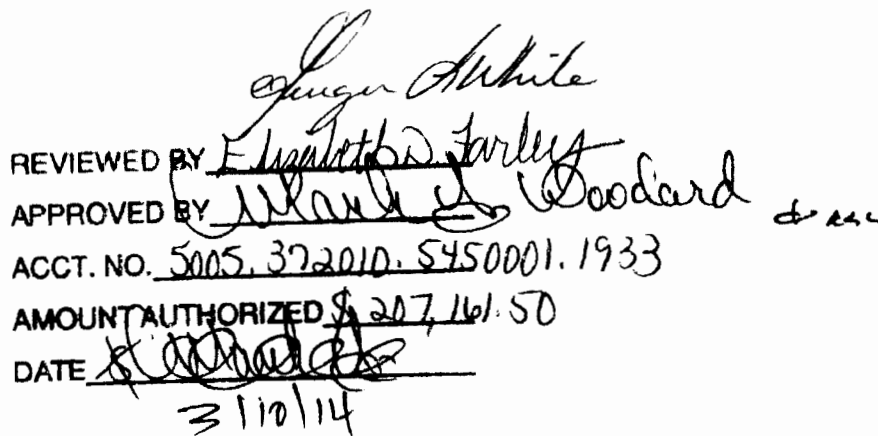 Ginger White
REVIEWED BY Elizabeth D Farley
APPROVED BY Mark S. Woodard
ACCT. NO. 5005.372010.5450001.1933
AMOUNT AUTHORIZED $ 207,161.50
DATE
3/10/14